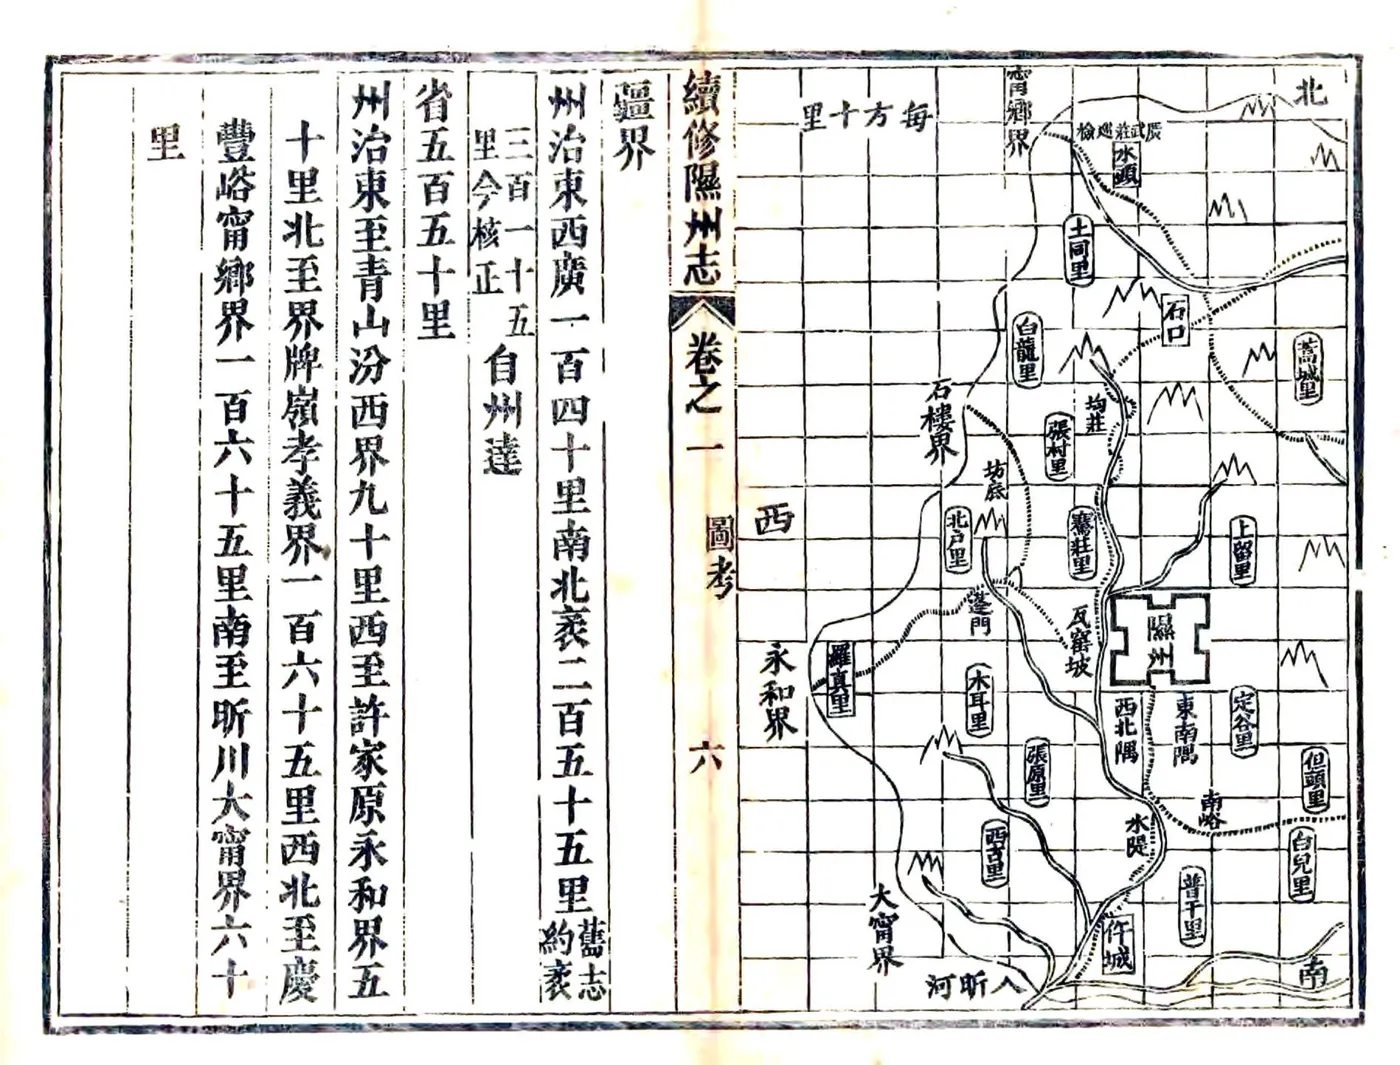 北
甯鄉界
每方十里
辰武莊巡檢
水頭
土同里
石口
白龍里
蒿城里
石樓界
均莊
張村里
坊底
西
北戸里
蓬門
上留里
瓦窑坡
隰州
永和界
羅真里
木耳里
西北隅
東南隅
定谷里
張原里
但頭里
南峪
水隄
西古里
白兒里
普干里
大甯界
仵城
入昕河
南
續修隰州志
卷之一
圖考
六
疆界
州治東西廣一百四十里南北袤二百五十五里舊志約袤
三百一十五里今核正自州達
省五百五十里
州治東至青山汾西界九十里西至許家原永和界五
十里北至界牌嶺孝義界一百六十五里西北至慶
豐峪甯鄉界一百六十五里南至昕川大甯界六十
里